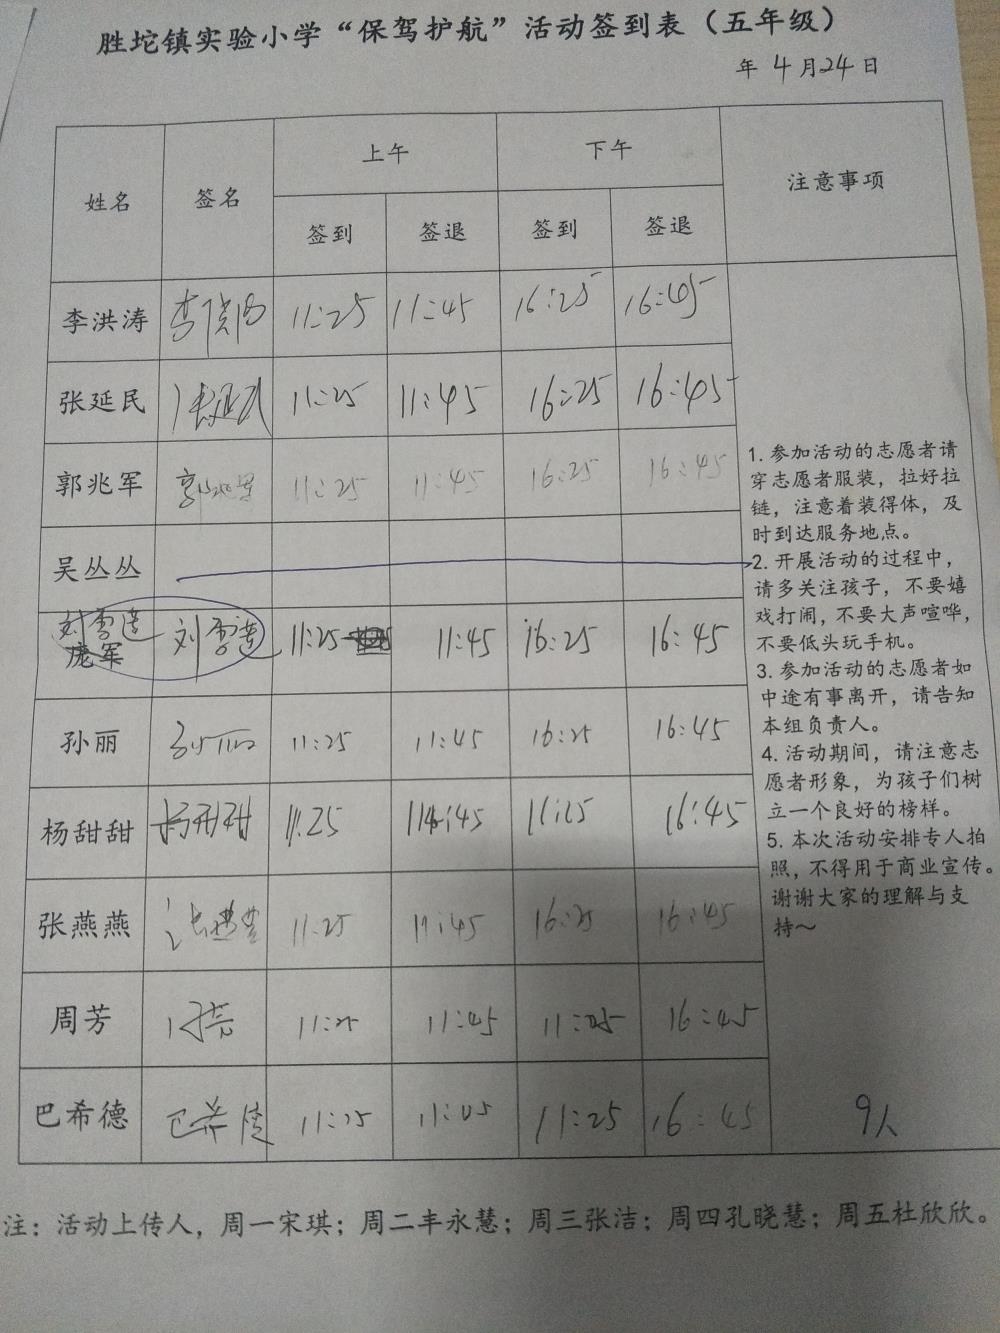 胜坨镇实验小学“保驾护航”活动签到表（五年级）
年 4月24日
姓名 签名 上午 下午 注意事项
签到 签退 签到 签退
李洪涛 11:25 11:45 16:25 16:45
张延民 张延民 11:25 11:45 16:25 16:45
郭兆军 郭兆军 11:25 11:45 16:25 16:45
吴丛丛
刘雪莲 刘雪莲 11:25 11:45 16:25 16:45
庞军
孙丽 孙丽 11:25 11:45 16:25 16:45
杨甜甜 杨甜甜 11:25 11:45 11:25 16:45
张燕燕 张燕燕 11:25 11:45 16:25 16:45
周芳 周芳 11:25 11:45 11:25 16:45
巴希德 巴希德 11:25 11:45 11:25 16:45
1. 参加活动的志愿者请
穿志愿者服装，拉好拉
链，注意着装得体，及
时到达服务地点。
2. 开展活动的过程中，
请多关注孩子，不要嬉
戏打闹，不要大声喧哗，
不要低头玩手机。
3. 参加活动的志愿者如
中途有事离开，请告知
本组负责人。
4. 活动期间，请注意志
愿者形象，为孩子们树
立一个良好的榜样。
5. 本次活动安排专人拍
照，不得用于商业宣传。
谢谢大家的理解与支
持～
9人
注：活动上传人，周一宋琪；周二丰永慧；周三张洁；周四孔晓慧；周五杜欣欣。